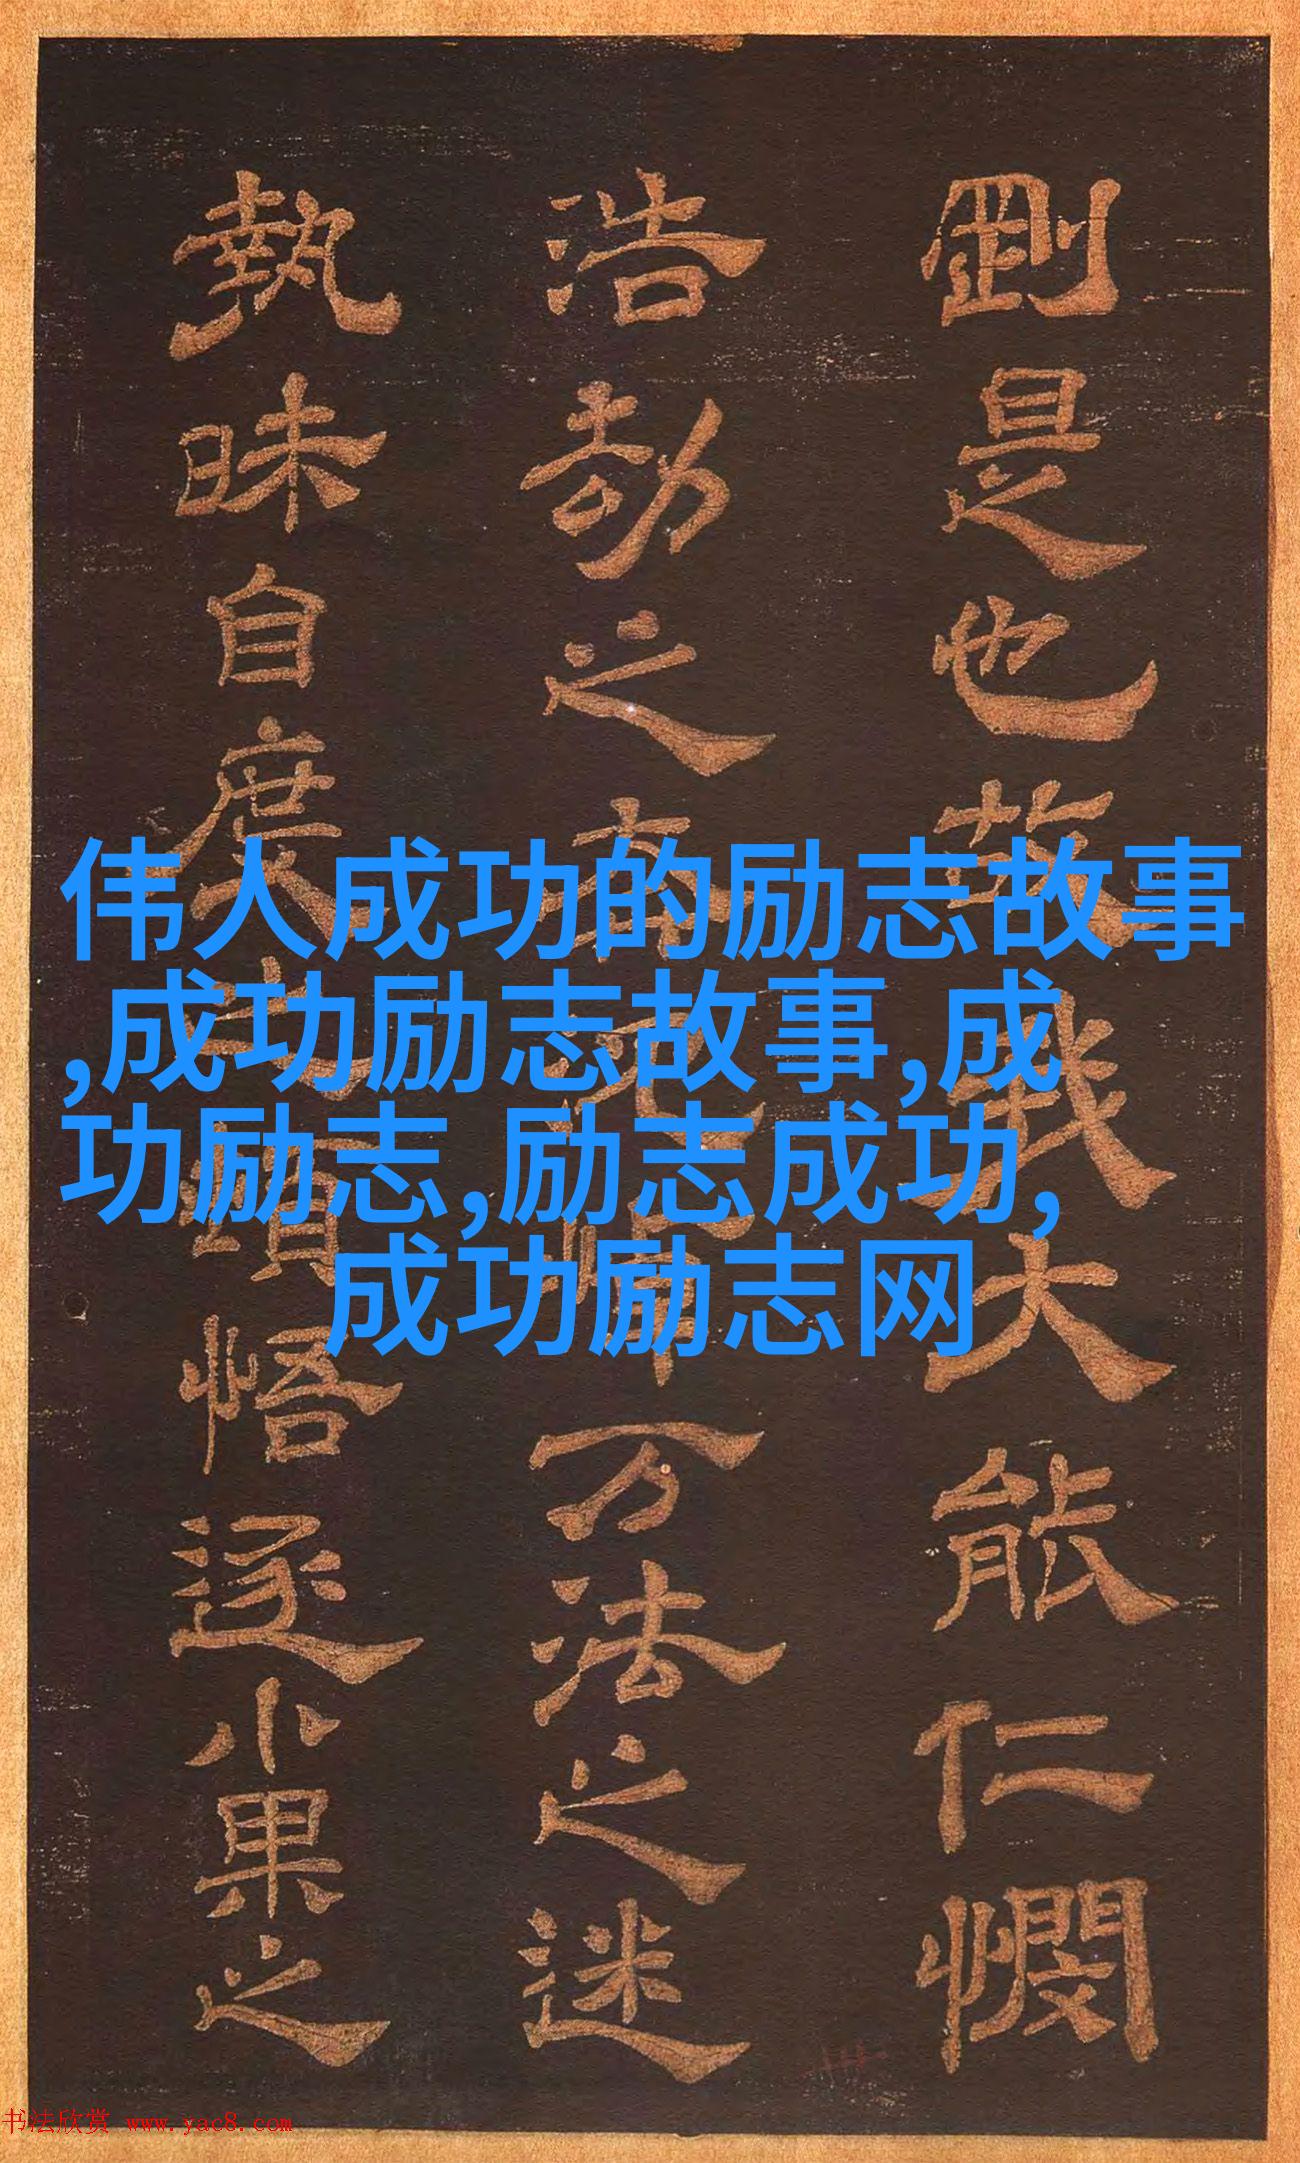 伟人成功的励志故事
,成功励志故事,成
功励志,励志成功,
成功励志网
剛是也故我大能仁憫
浩劫之 万法之迷
執昧自度 悟逐小果之
书法欣赏 www.yac8.com